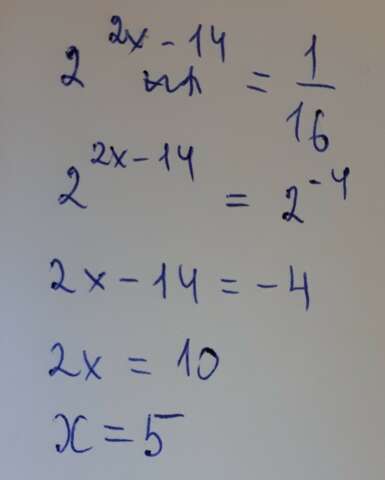 2^{2x-14} = \frac{1}{16}
2^{2x-14} = 2^{-4}
2x - 14 = -4
2x = 10
x = 5